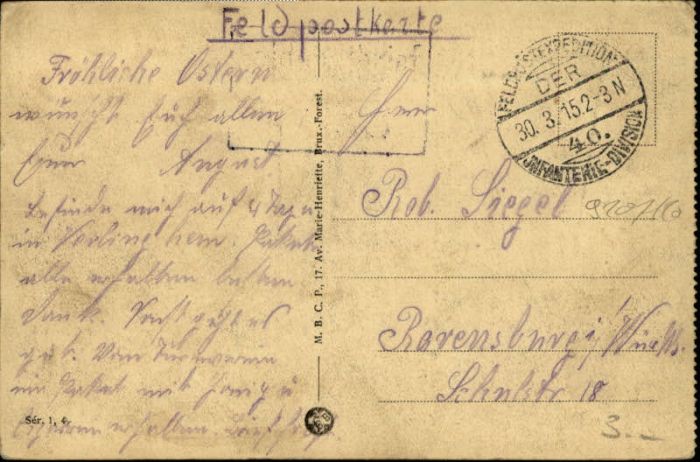 Feldpostkarte
Fröhliche Ostern
wünscht Euch allen
Euer August
befinde mich auf 4 Tage
in
alle erhalten besten
Dank. Sonst geht es
gut. Vom Turnverein
ein Paket mit Honig u
erhalten.
Sér. 1, 4.
M. B. C. P., 17. Av. Marie-Henriette, Brux.-Forest.
FELDPOSTEXPEDITION
DER
30. 3. 15. 2-3 N
40.
INFANTERIE-DIVISION
Herr
Rob. Siegel
Ravensburg i/Württ.
Schulstr 18
3.—